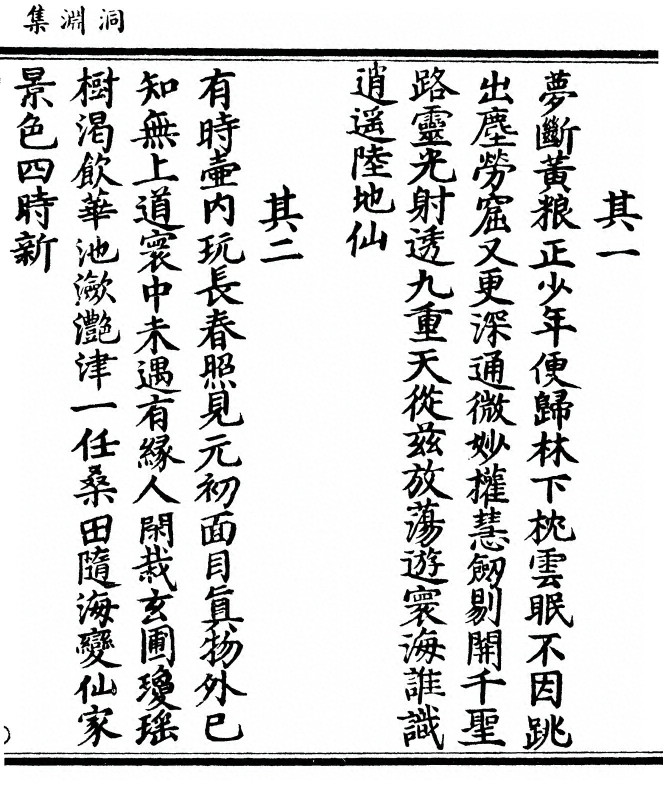 洞淵集
其一
夢斷黃粮正少年便歸林下枕雲眠不因跳
出塵勞窟又更深通微妙權慧劒剔開千聖
路靈光射透九重天從兹放蕩遊寰海誰識
逍遥陸地仙
其二
有時壷内玩長春照見元初面目眞物外已
知無上道寰中未遇有緣人閑栽玄圃瓊瑶
樹渴飲華池瀲灔津一任桑田隨海變仙家
景色四時新